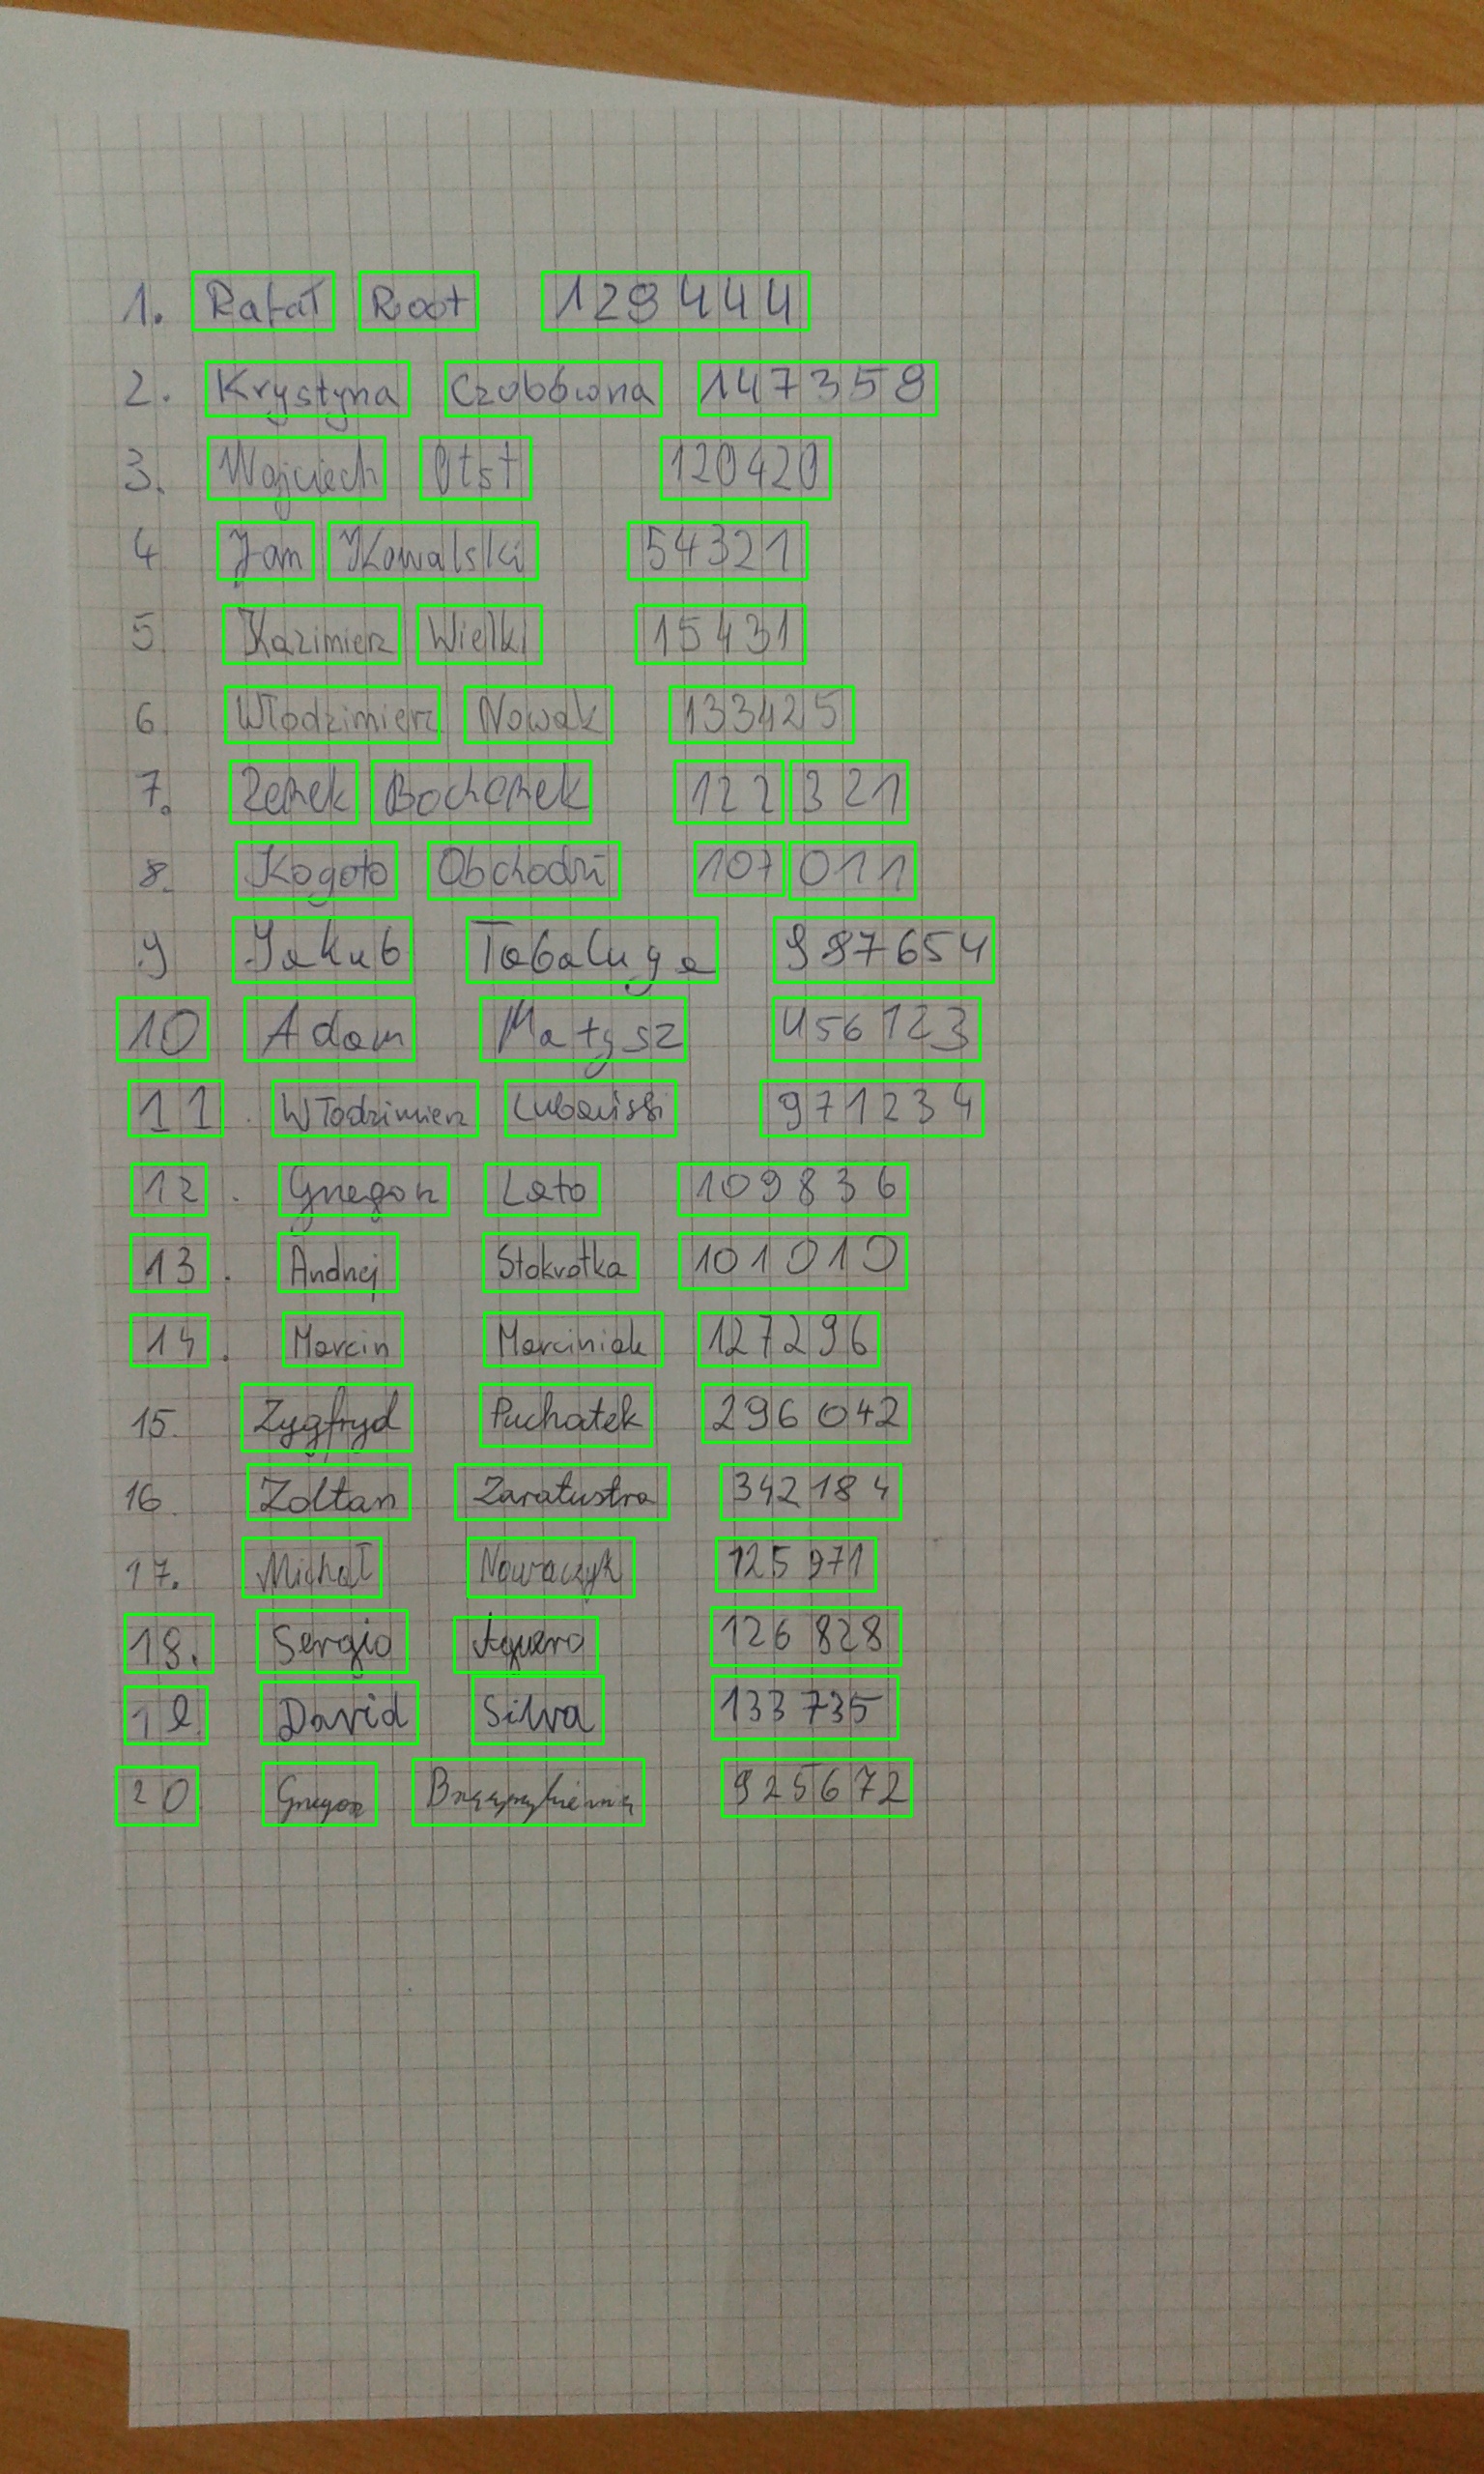 1. Rafał Root 129444
2. Krystyna Czubówna 147359
3. Wojciech Otst 120420
4 Jan Kowalski 54321
5 Kazimierz Wielki 15431
6. Włodzimierz Nowak 133425
7. Zenek Bochenek 122 321
8. Kogoto Obchodzi 107 011
9 Jakub Tabaluga 987654
10 Adam Małysz 456123
11. Włodzimierz 971234
12. Grzegorz Lato 109836
13. Andrzej Stokrotka 101010
14. Marcin Marciniak 127296
15. Zygfryd Puchatek 296042
16. Zoltan Zaratustra 342184
17. Michał Nowaczyk 125971
18. Sergio Aguero 126828
19. David Silva 133735
20. Grzegorz 925672